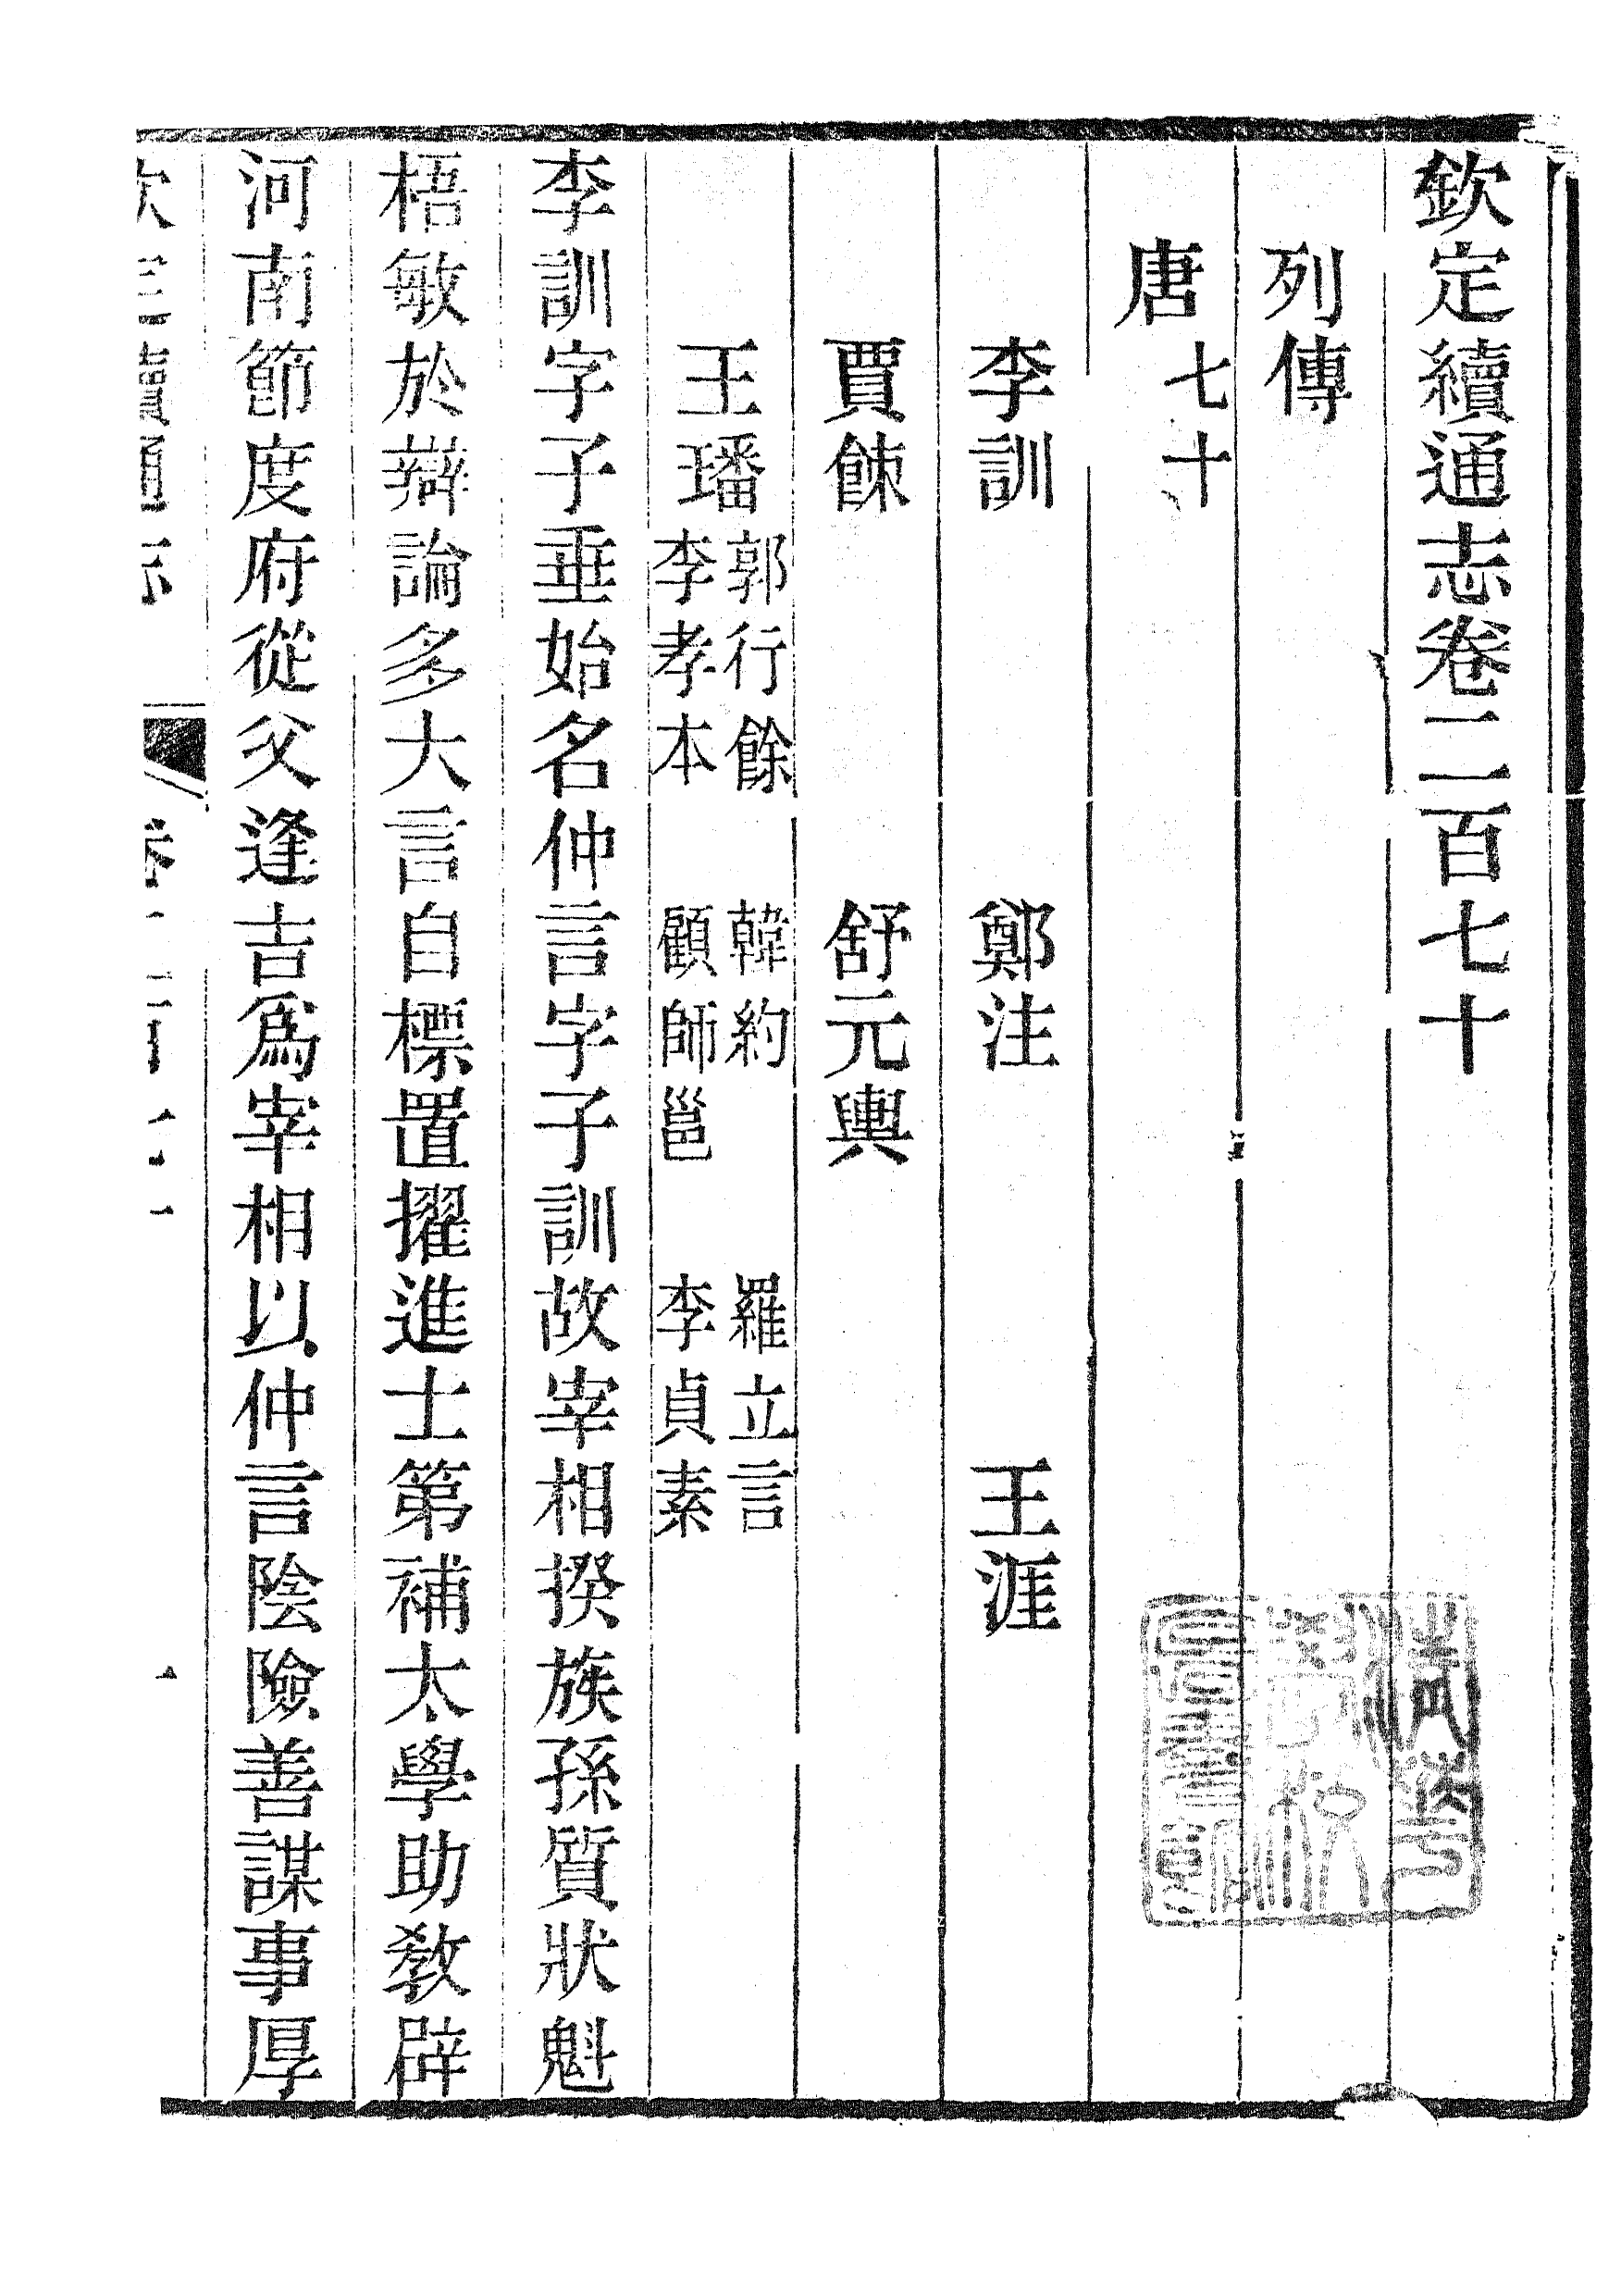 欽定續通志卷二百七十
列傳
唐七十
李訓　鄭注　王涯
賈餗　舒元輿
王璠　郭行餘　韓約　羅立言
李孝本　顧師邕　李貞素
李訓字子垂始名仲言字子訓故宰相揆族孫質狀魁
梧敏於辯論多大言自標置擢進士第補太學助教辟
河南節度府從父逢吉爲宰相以仲言陰險善謀事厚